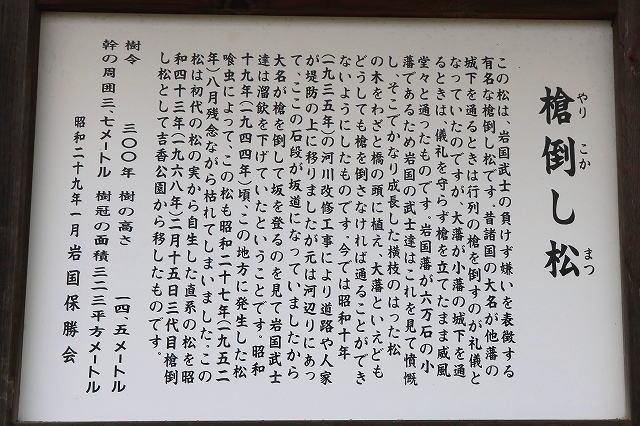 槍倒し松
やり
こか
まつ
この松は、岩国武士の負けず嫌いを表徴する
有名な槍倒し松です。昔諸国の大名が他藩の
城下を通るときは行列の槍を倒すのが礼儀と
なっていたのですが、大藩が小藩の城下を通
るときは、儀礼を守らず槍を立てたまま威風
堂々と通ったものです。岩国藩が六万石の小
藩であるため岩国の武士達はこれを見て憤慨
し、そこでかなり成長した横枝のはった松
の木をわざと橋の頭に植え、大藩といえども
どうしても槍を倒さなければ通ることができ
ないようにしたものです。今では昭和十年
(一九三五年)の河川改修工事により道路や人家
が堤防の上に移りましたが元は河辺りにあっ
て、ここの石段が坂道になっていましたから
大名が槍を倒して坂を登るのを見て岩国武士
達は溜飲を下げていたということです。昭和
十九年(一九四四年)頃、この地方に発生した松
喰虫によって、この松も昭和二十七年(一九五二
年)八月残念ながら枯れてしまいました。この
松は初代の松の実から自生した直系の松を昭
和四十三年(一九六八年)二月十五日三代目槍倒
し松として吉香公園から移したものです。
樹令 三〇〇年 樹の高さ 一四、五メートル
幹の周囲三、七メートル 樹冠の面積三二三平方メートル
昭和二十九年一月 岩国保勝会